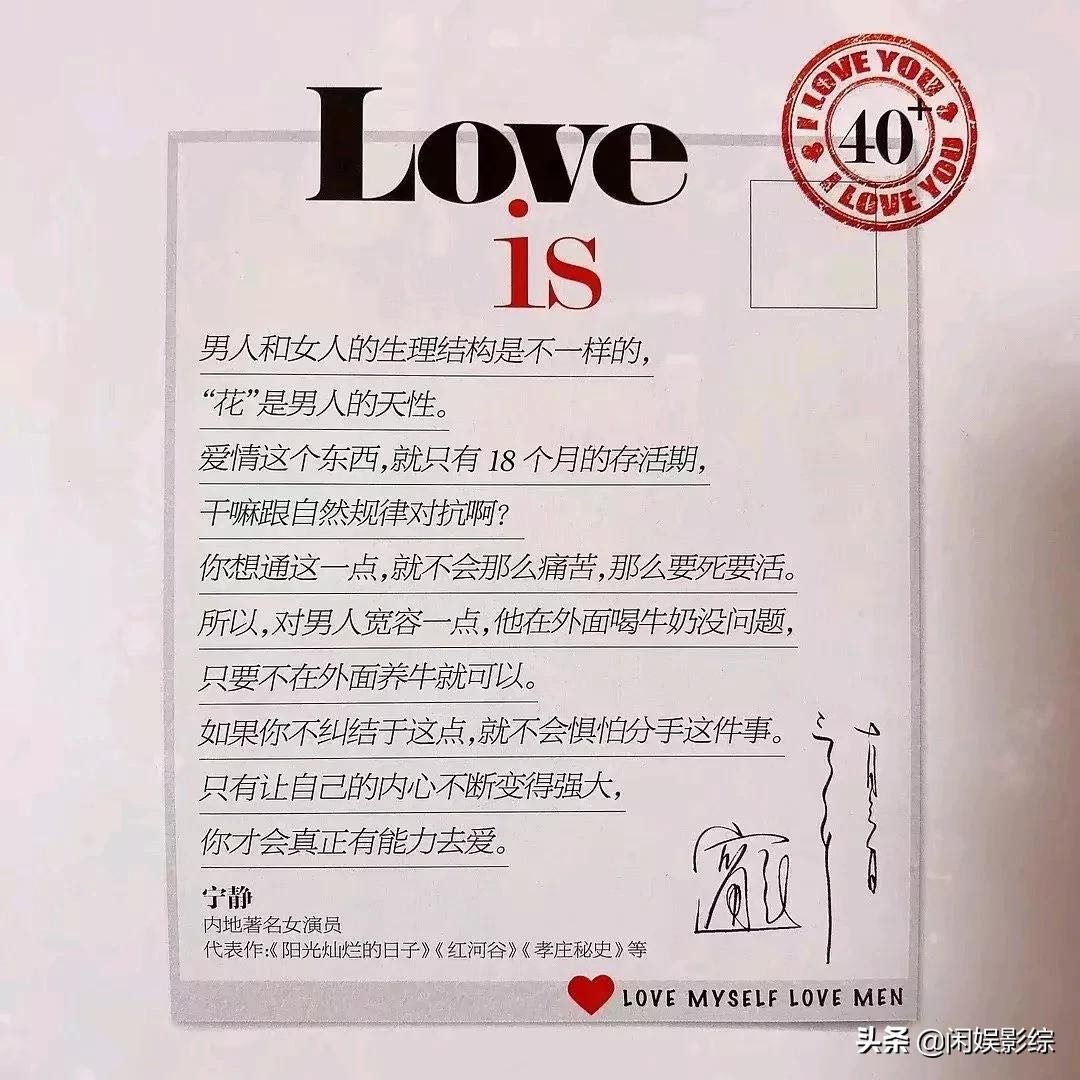 I LOVE YOU
40+
I LOVE YOU
Love
is
男人和女人的生理结构是不一样的，
“花”是男人的天性。
爱情这个东西，就只有 18 个月的存活期，
干嘛跟自然规律对抗啊？
你想通这一点，就不会那么痛苦，那么要死要活。
所以，对男人宽容一点，他在外面喝牛奶没问题，
只要不在外面养牛就可以。
如果你不纠结于这点，就不会惧怕分手这件事。
只有让自己的内心不断变得强大，
你才会真正有能力去爱。
宁静
内地著名女演员
代表作：《阳光灿烂的日子》《红河谷》《孝庄秘史》等
LOVE MYSELF LOVE MEN
头条 @闲娱影综